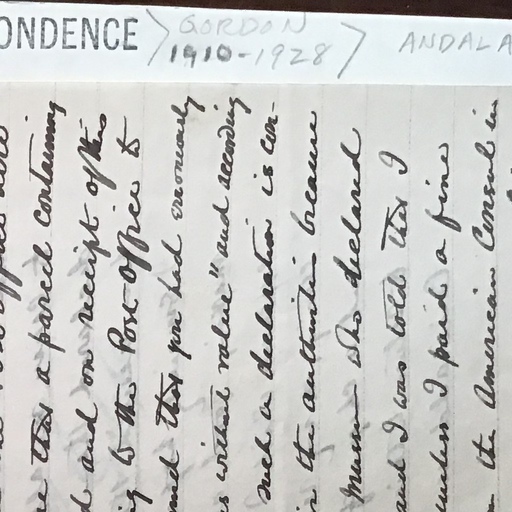 the Post Office here
that a parcel containing
and on receipt of this
to the Post Office to
that you had erroneously
without value" and according
such a declaration is con-
the authorities because
Museum who declared
and I was told that I
unless I paid a fine
the American Consul in
ONDENCE
GORDON
1910-1928
ANDALA